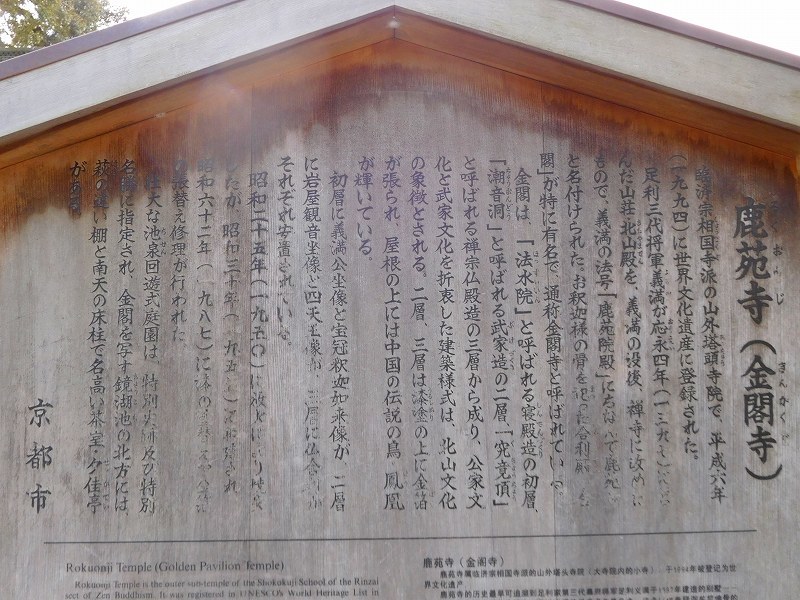 鹿苑寺（金閣寺）
臨済宗相国寺派の山外塔頭寺院で、平成六年
（一九九四）に世界文化遺産に登録された。
足利三代将軍義満が応永四年（一三九七）に
んだ山荘・北山殿を、義満の没後、禅寺に改め
もので、義満の法号「鹿苑院殿」にちなんで鹿苑
と名付けられた。お釈迦様の骨を祀った舎利殿
閣」が特に有名で、通称金閣寺と呼ばれてい
金閣は、「法水院」と呼ばれる寝殿造の初層、
「潮音洞」と呼ばれる武家造の二層、「究竟頂」
と呼ばれる禅宗仏殿造の三層から成り、公家文
化と武家文化を折衷した建築様式は、北山文化
の象徴とされる。二層、三層は漆塗の上に金箔
が張られ、屋根の上には中国の伝説の鳥鳳凰
が輝いている。
初層に義満公坐像と宝冠釈迦如来像が、二層
に岩屋観音坐像と四天王像が、三層に仏舎利が
それぞれ安置されている。
昭和二十五年（一九五〇）に放火により焼失
したが、昭和三十年（一九五五）に再建され、
昭和六十二年（一九八七）に漆の
の張替え修理が行われた。
壮大な池泉回遊式庭園は、特別史跡及び特別
名勝に指定され、金閣を写す鏡湖池の北方には、
萩の違い棚と南天の床柱で名高い茶室・夕佳亭
がある。
京都市
Rokuonji Temple (Golden Pavilion Temple)
Rokuonji Temple is the outer sub-temple of the Shokokuji School of the Rinzai
sect of Zen Buddhism. It was registered in UNESCO's World Heritage List in
鹿苑寺（金阁寺）
鹿苑寺属临济宗相国寺派的山外塔头寺院（大寺院内的小寺）。于1994年被登记为世
界文化遗产。